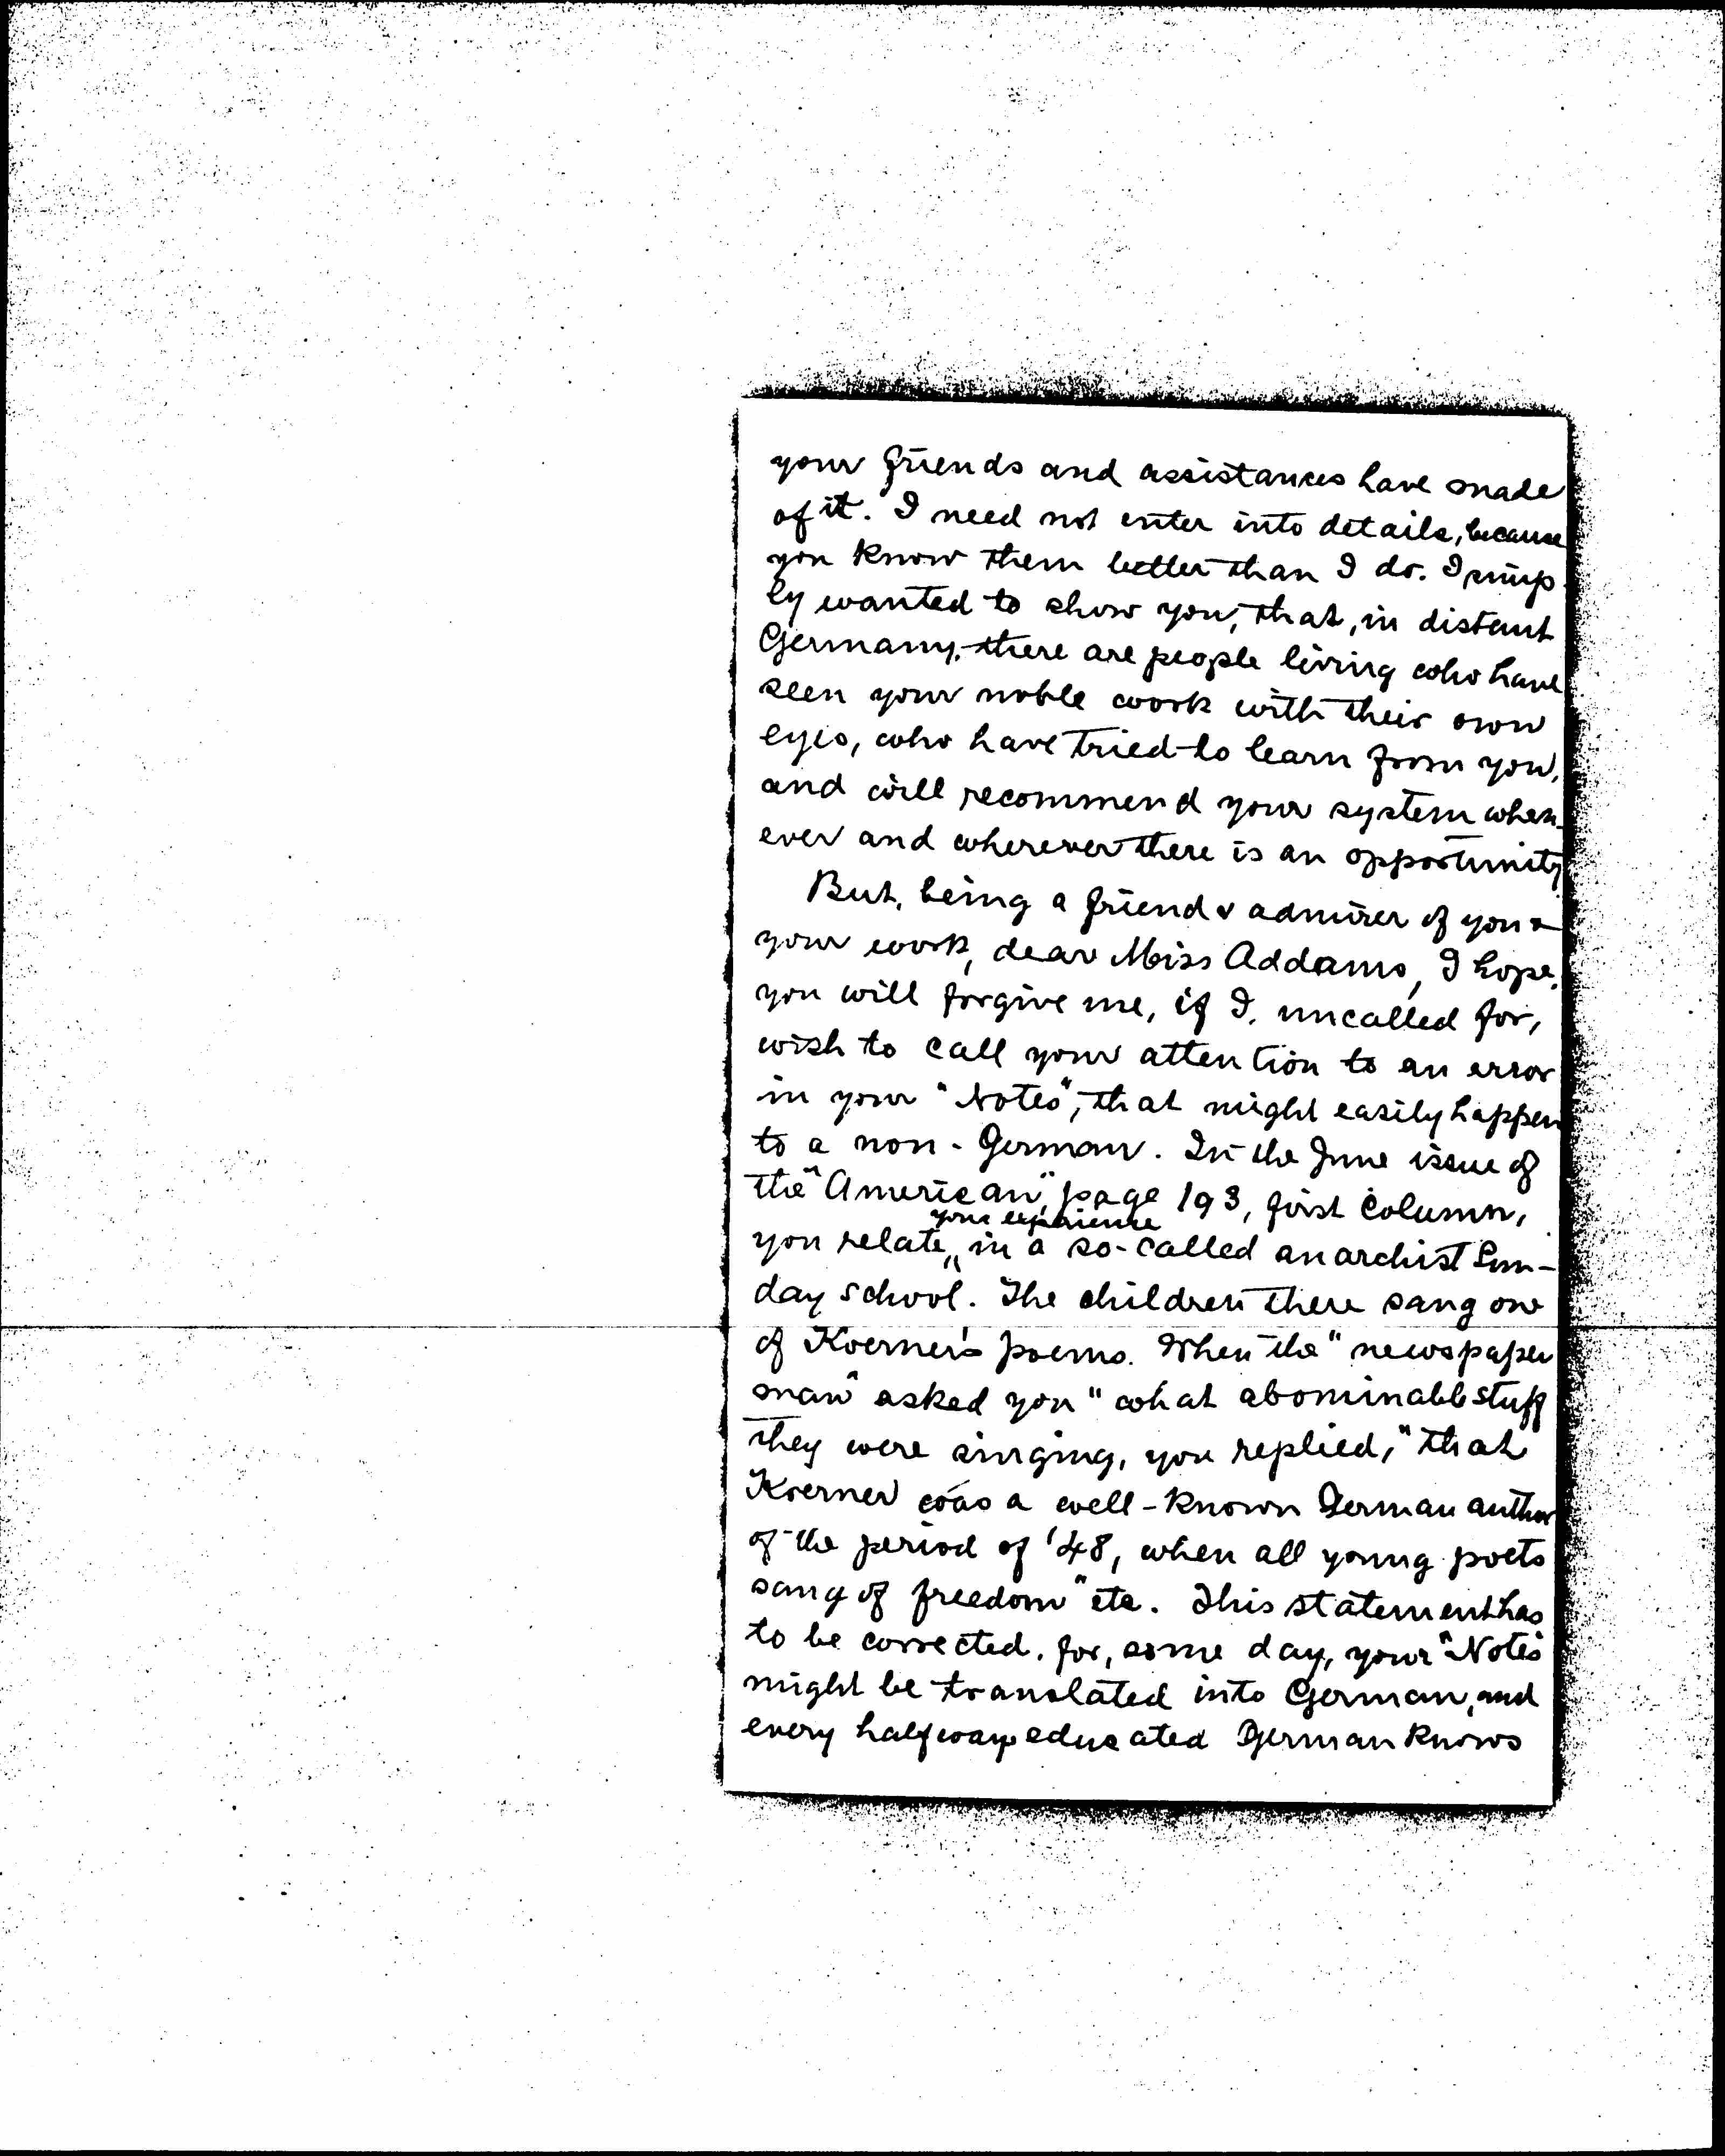 your friends and assistances have made
of it. I need not enter into details, because
you know them better than I do. I simp-
ly wanted to show you, that, in distant
Germany, there are people living who have
seen your noble work with their own
eyes, who have tried to learn from you,
and will recommend your system when-
ever and wherever there is an opportunity
But, being a friend & admirer of you &
your work, dear Miss Addams, I hope,
you will forgive me, if I, uncalled for,
wish to call your attention to an error
in your "Notes", that might easily happen
to a non-German. In the June issue of
the "American", page 193, first column,
your experience
you relate in a so-called anarchist Sun-
day school. The children there sang one
of Koerner's poems. When the "newspaper
man" asked you "what abominable stuff
they were singing, you replied, "that
Koerner was a well-known German author
of the period of '48, when all young poets
sang of freedom" etc. This statement has
to be corrected, for, some day, your "Notes"
might be translated into German, and
every halfway educated German knows